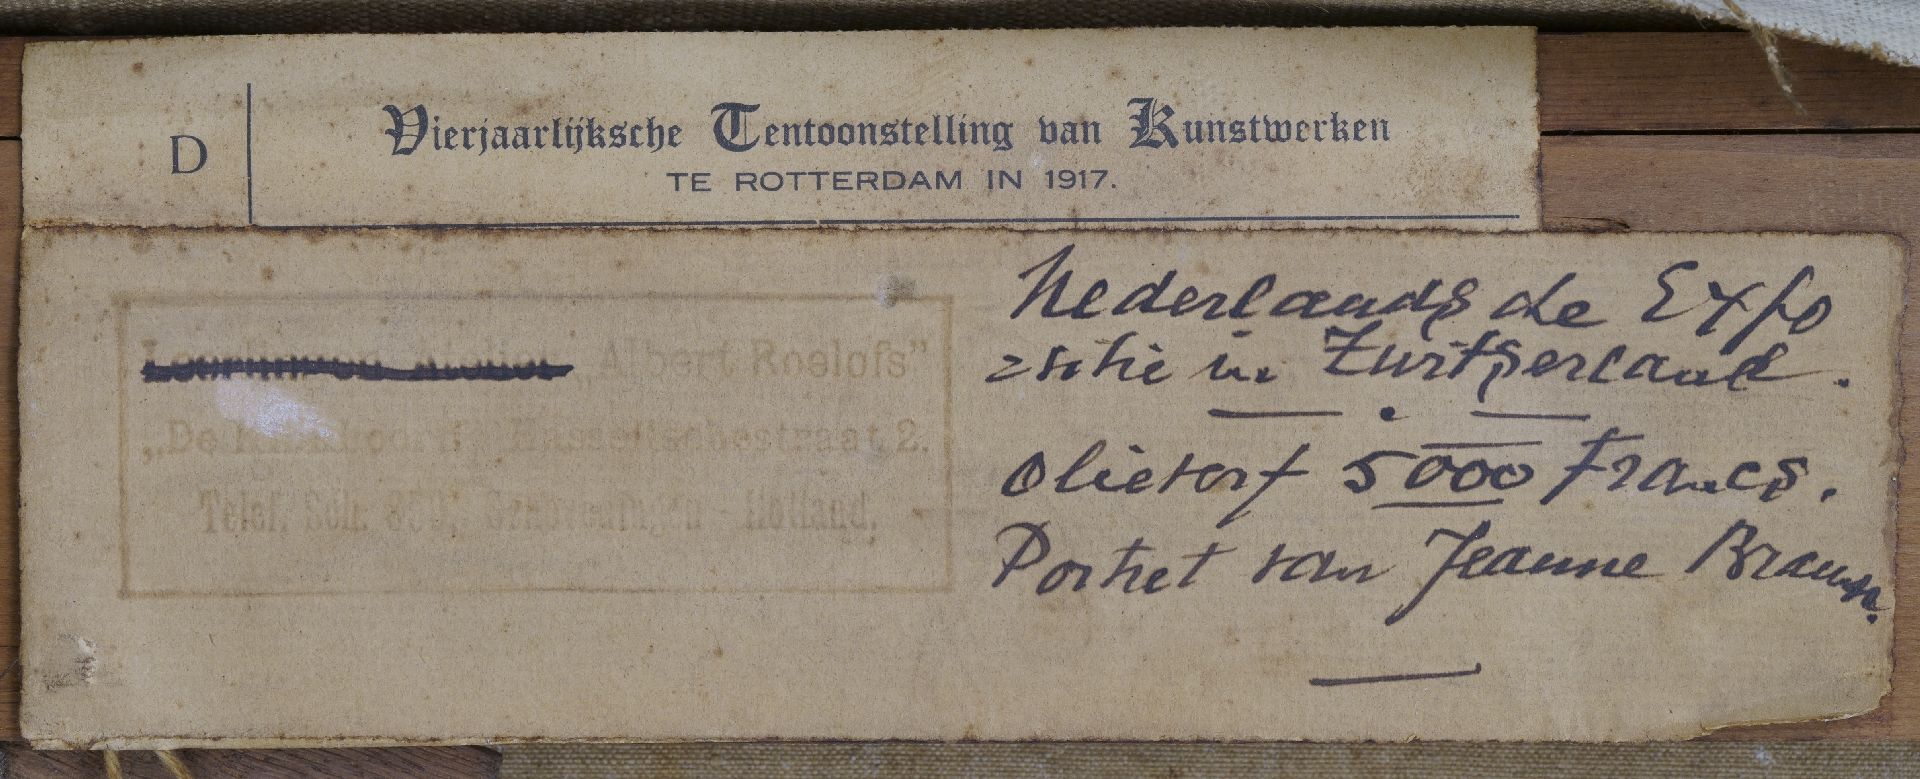 D
Vierjaarlijksche Tentoonstelling van Kunstwerken
TE ROTTERDAM IN 1917.
Atelier „Albert Roelofs”
„De Hasseltschestraat 2.
Telef. Sch. Holland.
Nederlandsche Expo
zsitie in Zwitserland.
olieverf 5000 Francs.
Portret van Jeanne